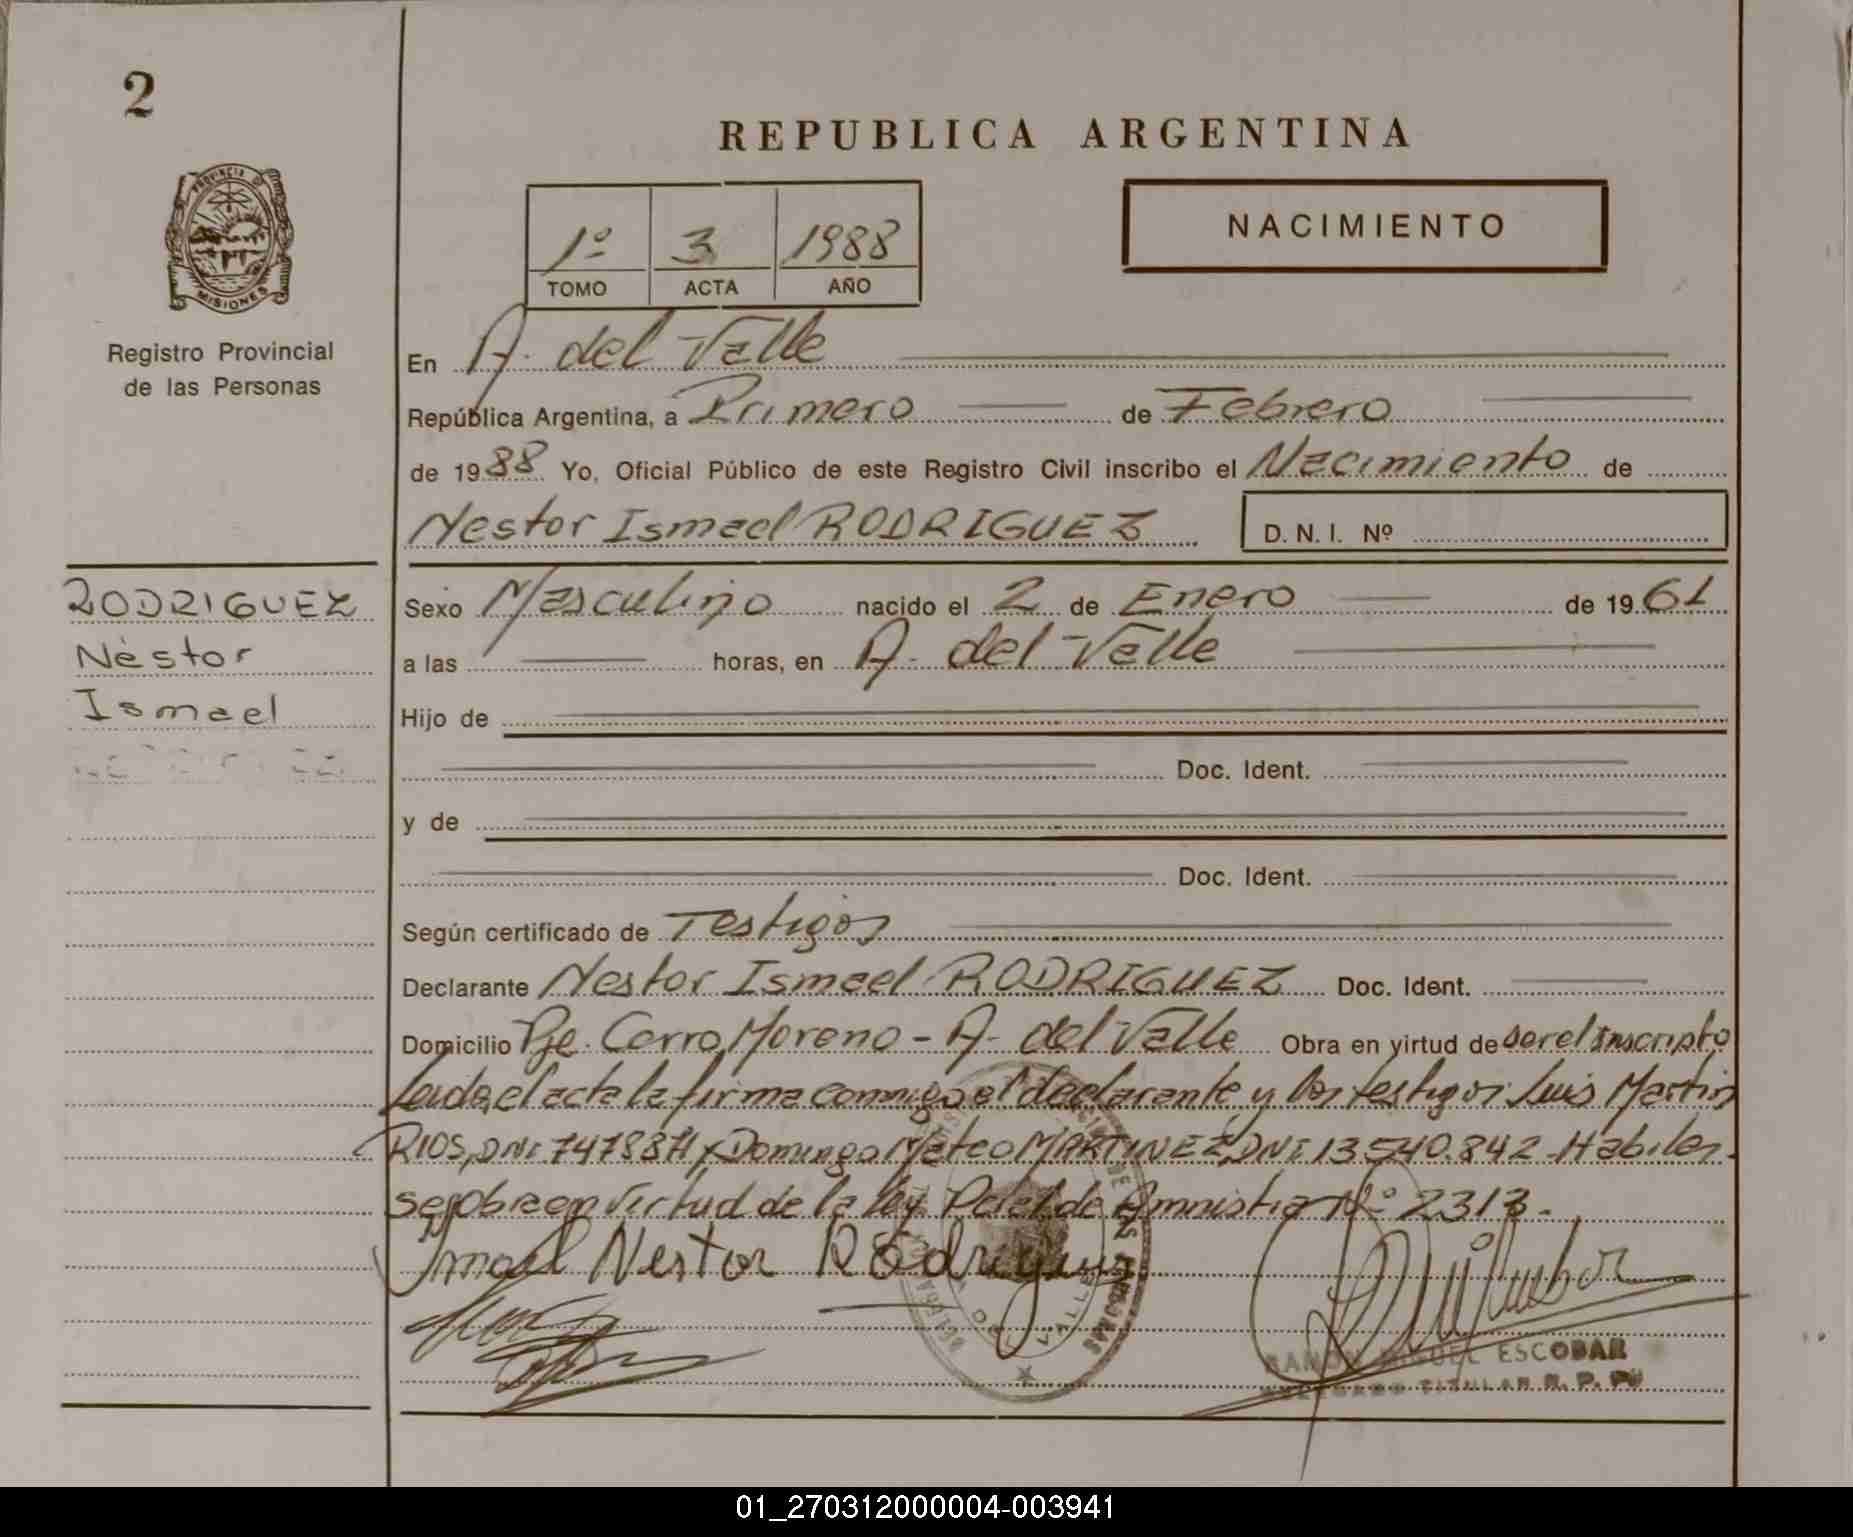 2
PROVINCIA DE
MISIONES
Registro Provincial
de las Personas
REPUBLICA ARGENTINA
1º 3 1988
TOMO ACTA AÑO
NACIMIENTO
En A. del Valle
República Argentina, a Primero de Febrero
de 1988 Yo, Oficial Público de este Registro Civil inscribo el Nacimiento de
Nestor Ismael RODRIGUEZ D. N. I. Nº
RODRIGUEZ
Néstor
Ismael
Sexo Masculino nacido el 2 de Enero de 1961
a las horas, en A. del Valle
Hijo de
Doc. Ident.
y de
Doc. Ident.
Según certificado de Testigos
Declarante Nestor Ismael RODRIGUEZ Doc. Ident.
Domicilio Pje. Cerro Moreno - A. del Valle Obra en virtud de ser el inscripto
Leida el acta la firma conmigo el declarante y los testigos Luis Martin
RIOS, DNI. y Domingo Mateo MARTINEZ, DNI 13.540.842 - Habiles
se obra en virtud de la ley de Amnistia Nº 2313.
Ismael Nestor Rodriguez
DEL VALLE
RAMON MIGUEL ESCOBAR
DELEGADO TITULAR R. P. P.
01_270312000004-003941